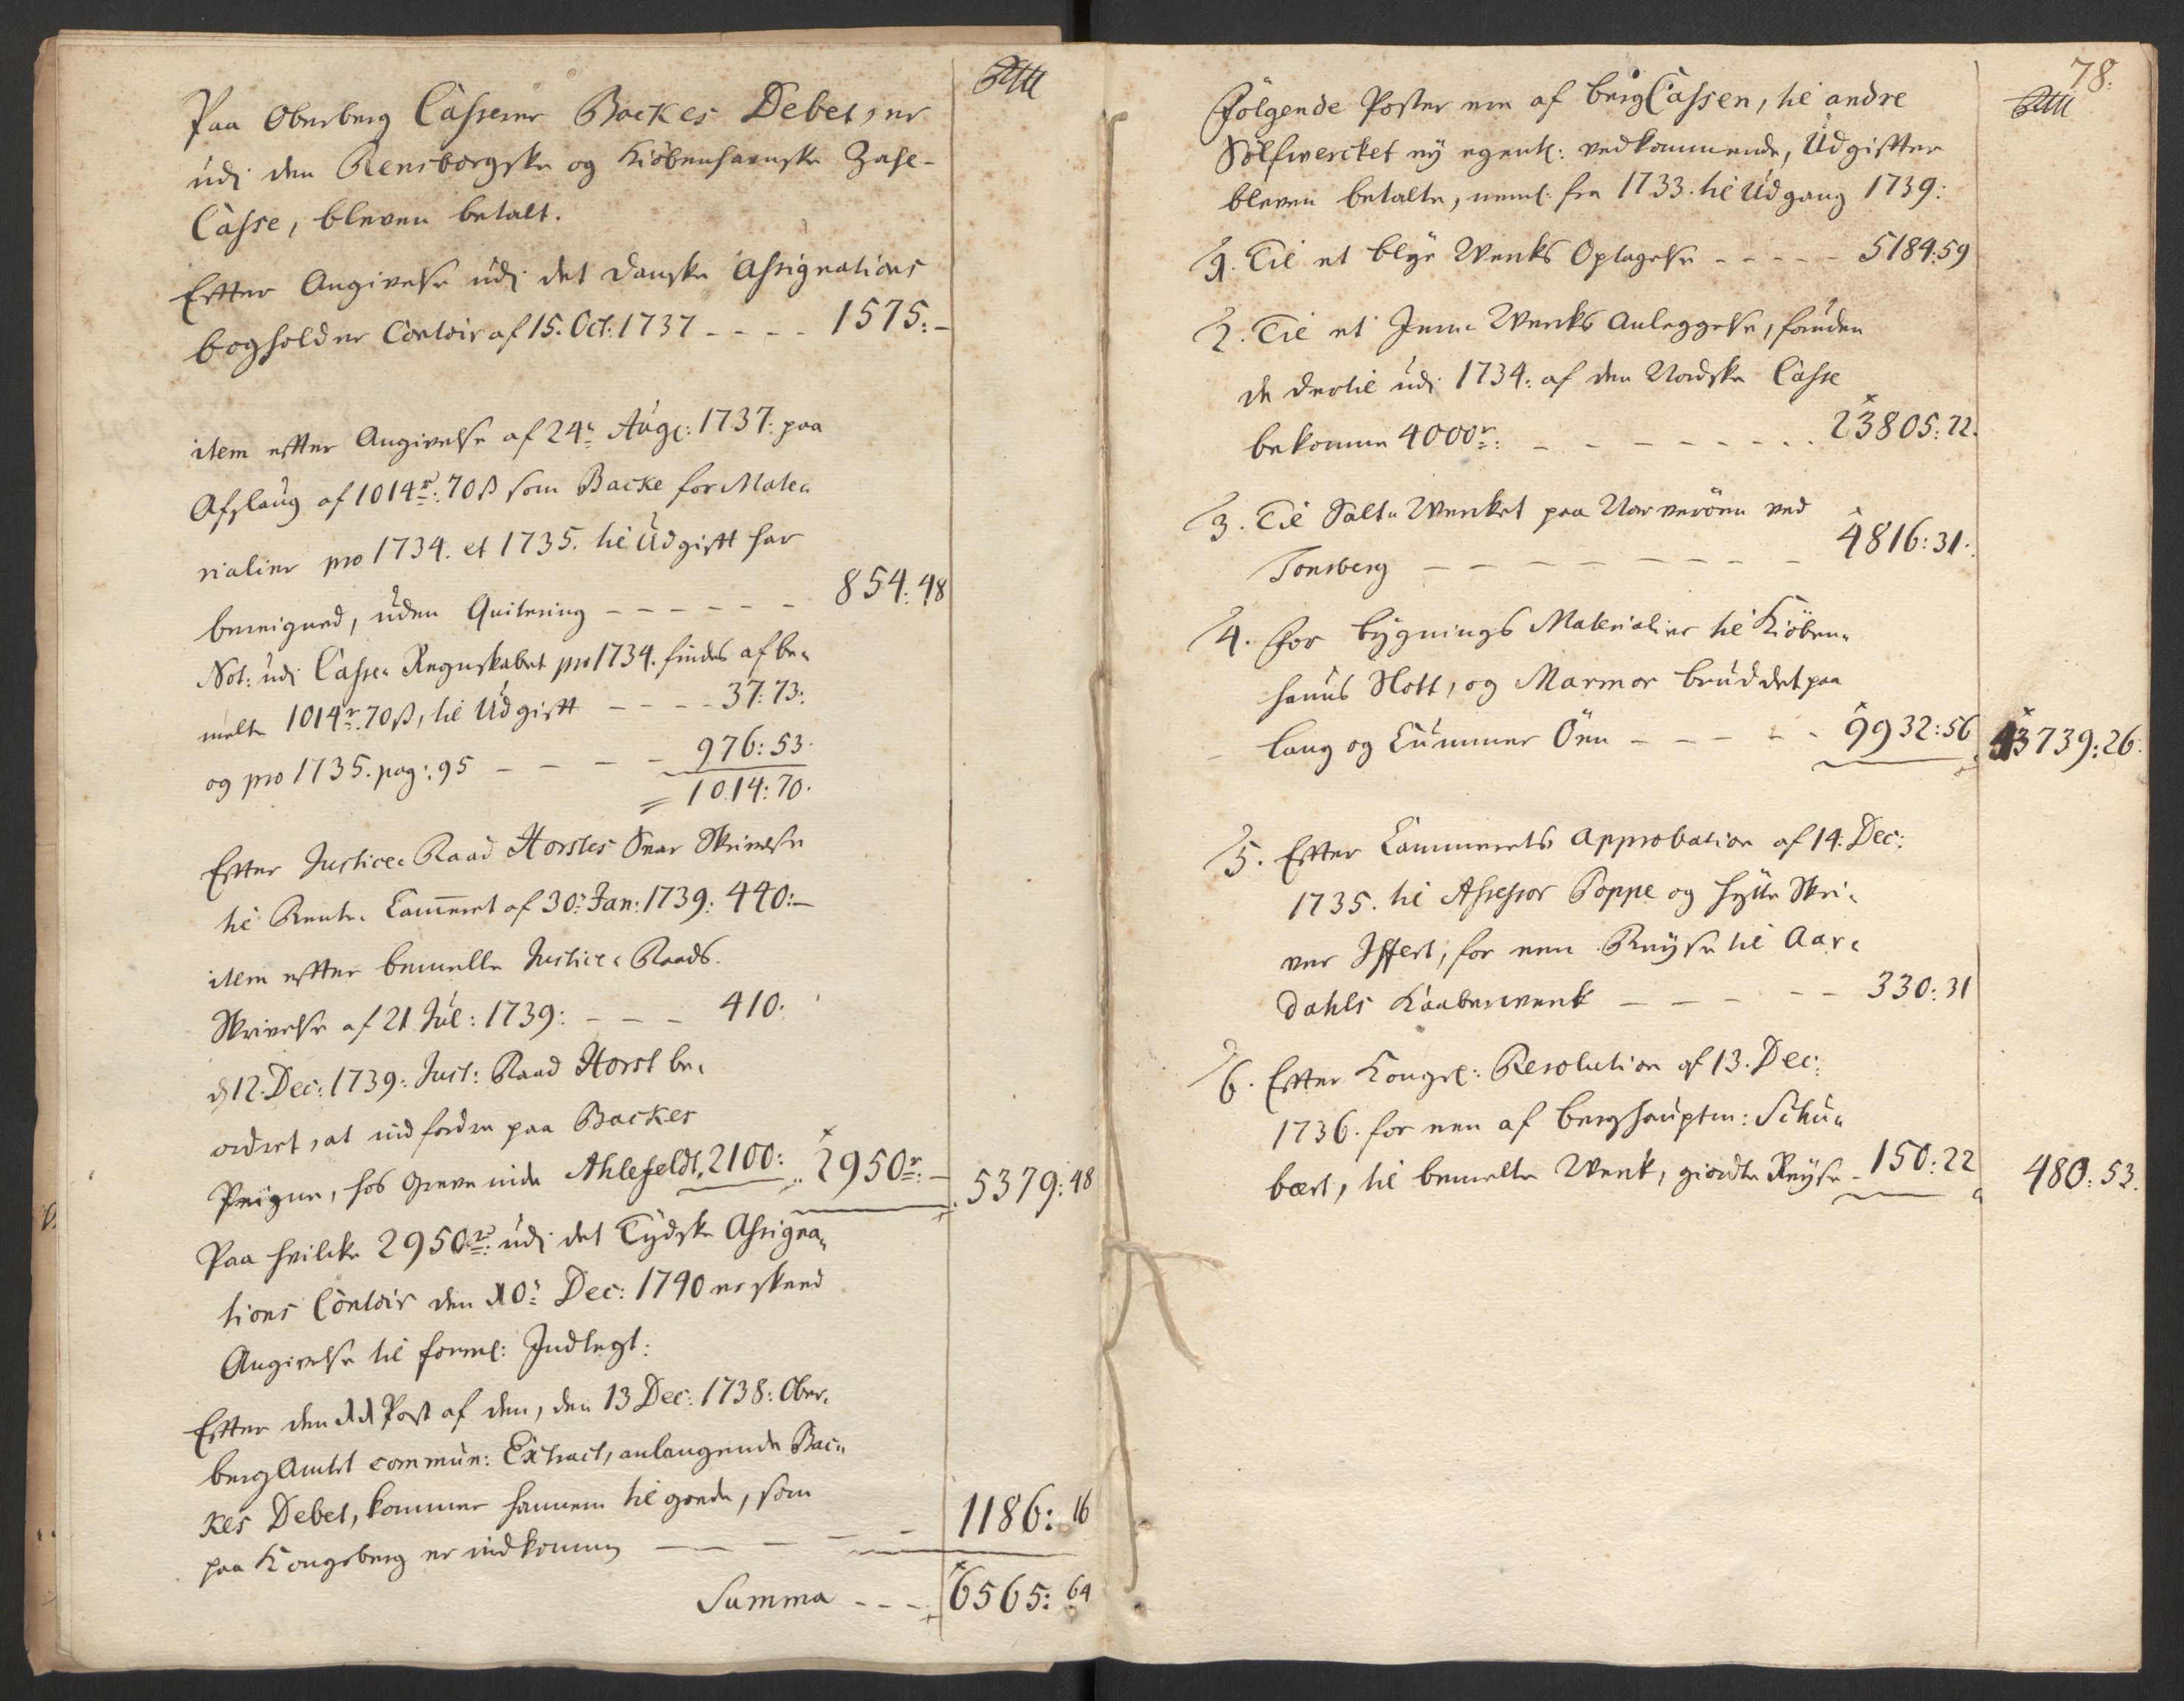 Rdlr
Paa Oberberg Casserer Backes Debet, er
udi den Rensborgske og Kiöbenhavnske Zahl-
Casse, bleven betalt.
Effter Angivelse udi det danske Assignations
bogholder Contoir af 15. Oct: 1737 - - - - 1575:-
item effter Angivelse af 24de Augl: 1737. paa
Afslaug af 1014r: 70ß som Backe for Mate-
rialier pro 1734. et 1735. til Udgifft har
bereigned, uden Quitering - - - - - - 854: 48
Not: udi Casse-Regnskabet pro 1734. findes afbe-
melte 1014r. 70ß, til Udgifft - - - - 37: 73:
og pro 1735. pag: 95 - - - - 976: 53.
= 1014: 70.
Effter Justice-Raad Horstes Svar Skrivelse
til Rente-Cammeret af 30: Jan: 1739: 440:-
item effter bemelte Justice-Raads
Skrivelse af 21 Jul: 1739: - - - 410.
d 12. Dec: 1739: Just: Raad Horst be-
ordret, at indfordre paa Backes
Veigne, hos Grevinde Ahlefeldt, 2100: 2950r: - 5379: 48
Paa hvilcke 2950r: udi det Tydske Assigna-
tions Contoir den 10: Dec: 1740 er skeed
Angivelse til forml: Indlegt:
Effter den 11 Post af den, den 13 Dec: 1738: Ober-
bergAmtet commun: Extract, anlangende Bac-
kes Debet, kommer hannem til goede, som
paa Kongsberg er indkommen - - - - 1186: 16
Summa - - - 6565: 64
78.
Rdlr
Fölgende Poster ere af bergCassen, til andre
Sölfwercket ey egentl: vedkommende, Udgiffter
bleven betalte, neml: fra 1733. til Udgang 1739:
1. Til et blye Werks Optagelse - - - - - 5184: 59
2. Til et Jern-Werks Anleggelse, foruden
de dertil udi 1734: af den Nordske Casse
bekomne 4000r: - - - - - - - - 23805: 72.
3. Til Salt-Werket paa Narveröen ved
Tonsberg - - - - - - - - - 4816: 31.
4. for bygnings Materialier til Kiöben-
havns Slott, og Marmor bruddet paa
Lang og Giummer Öen - - - - - 9932: 56 43739: 26.
5. Effter Cammerets Approbation af 14. Dec:
1735. til Assessor Poppe og Hytte Skri-
ver Iffert, for een Reyse til Aar-
dahls Kaaberwerk - - - - - 330: 31
6. Effter Kongel: Resolution af 13. Dec:
1736. for een af berghauptm: Schu-
bært, til bemelte Werk, giordte Reyse - 150: 22 480: 53.